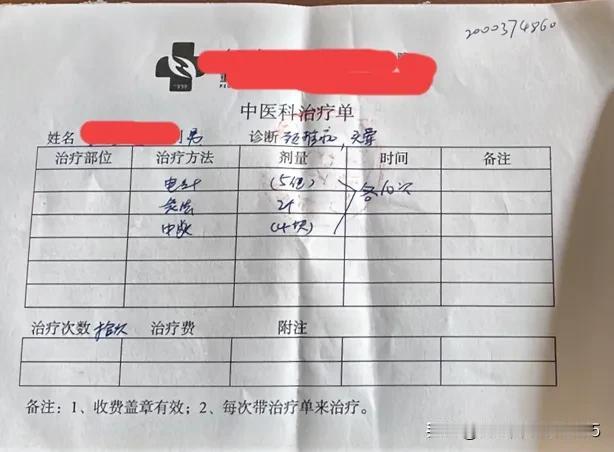 2000374860
中医科治疗单
姓名 男 诊断 颈椎病，头晕
治疗部位 治疗方法 剂量 时间 备注
电针 (5组) 各10次
灸法 2+
中频 (4块)
治疗次数 拾次 治疗费 附注
备注：1、收费盖章有效；2、每次带治疗单来治疗。